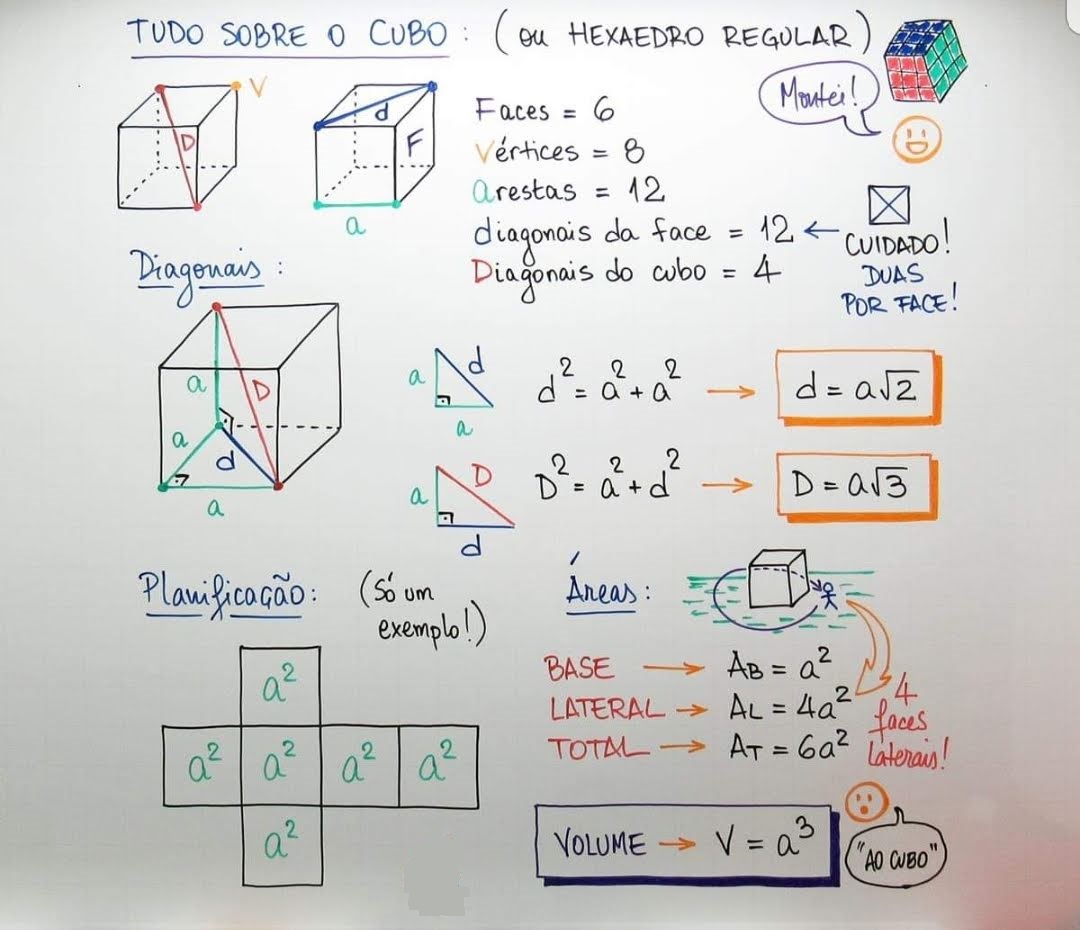 TUDO SOBRE O CUBO: (OU HEXAEDRO REGULAR)
Montei!
V
D
d
F
a
Faces = 6
Vértices = 8
arestas = 12
diagonais da face = 12 ←
Diagonais do cubo = 4
CUIDADO!
DUAS
POR FACE!
Diagonais:
a
D
a
d
a
a
d
a
d² = a² + a² → d = a√2
a
D
d
D² = a² + d² → D = a√3
Planificação: (Só um
exemplo!)
a²
a² a² a² a²
a²
Áreas:
BASE → AB = a²
LATERAL → AL = 4a²
TOTAL → AT = 6a²
4
faces
laterais!
VOLUME → V = a³
"AO CUBO"